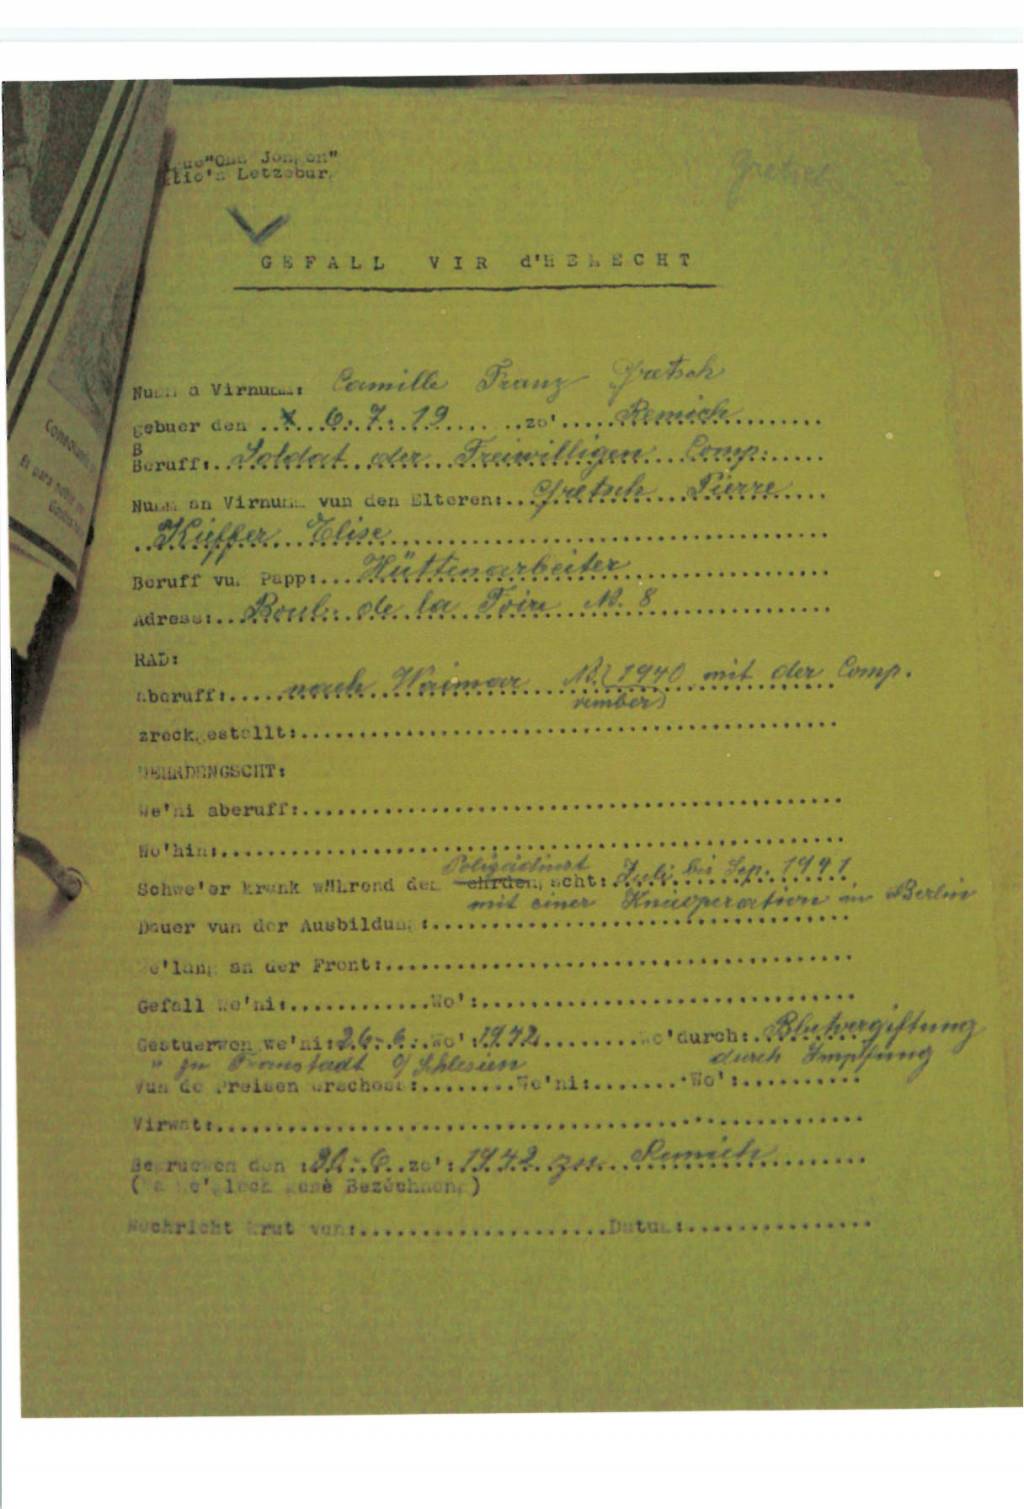 "Ons Jongen"
Letzebur
Gretsch
GEFALL VIR d'HEMECHT
Numm a Virnumm: Camille Franz Gretsch
gebuer den ..6.7.19.... ..zo'....Remich............
B
Beruff:..Soldat der Freiwilligen Comp.....
Numm an Virnumm vun den Elteren:...Gretsch Pierre....
..Küffer Elise...........................................
Beruff vum Papp:...Hüttenarbeiter....................
Adress:.. de la Foire N. 8..................
RAD:
aberuff:.....nach Weimar No (1940 mit der Comp.
vember)
zreckgestellt:............................................
WEHRDENGSCHT:
We'ni aberuff:............................................
Wo'hin:..................................................
Polizeidienst
Schwe'er krank während dem ehrdengscht: Juli bis Sep. 1941
mit einer Knieoperation in Berlin
Dauer vun der Ausbildung:..................................
We'lang an der Front:......................................
Gefall we'ni:............Wo':..............................
Gestuerwen we'ni:26.6..Wo':1942.........Wo'durch: Blutvergiftung
" zu Fraustadt / Schlesien durch Impfung
Vun de Preisen erschoss:........We'ni:........Wo':..........
Virwat:....................................................
Begruewen den :30.6..zo':1942 zu Remich...........
Bezéchnung)
Nochricht krut vun:......................Datum:................